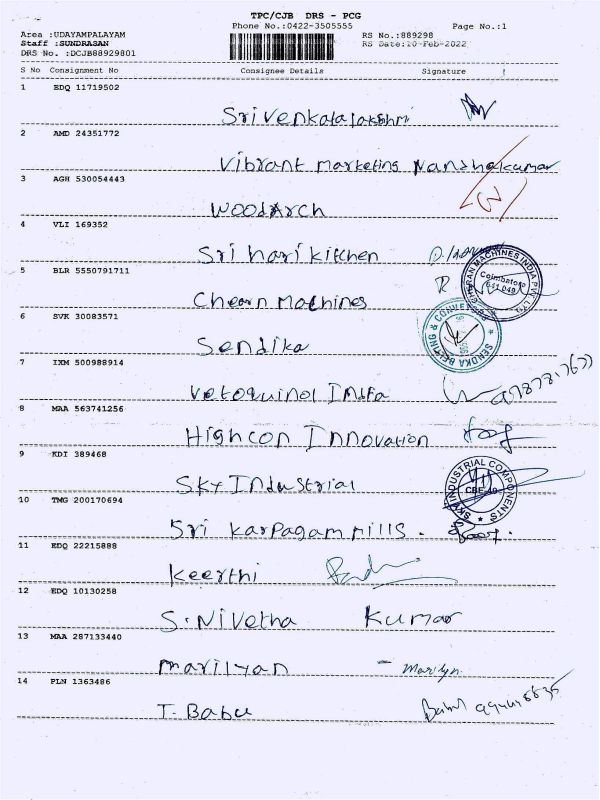 TPC/CJB DRS - PCG
Phone No.:0422-3505555 Page No.:1
Area :UDAYAMPALAYAM
Staff :SUNDRASAN
DRS No. :DCJB88929801
RS No.:889298
RS Date:10-Feb-2022
S No Consignment No Consignee Details Signature
1 EDQ 11719502
Srivenkatalakshmi
2 AMD 24351772
Vibrant Marketing Nandhakumar
3 AGH 530054443
WoodArch
4 VLI 169352
Sri hari kitchen
5 BLR 5550791711
Machines
MACHINES INDIA PVT. LTD.
Coimbatore
641 049
6 SVK 30083571
Sendika
SENDKA BELTING & CONVEYORS
7 IXM 500988914
Vetoquinol India
8 MAA 563741256
Highcon Innovation
9 KDI 389468
Sky Industrial
SKY INDUSTRIAL COMPONENTS
CBE
10 TMG 200170694
Sri karpagam mills.
11 EDQ 22215888
Keerthi
12 EDQ 10130258
S. Nivetha Kumar
13 MAA 287133440
Marilyan - Marilyn
14 PLN 1363486
T. Babu Babu